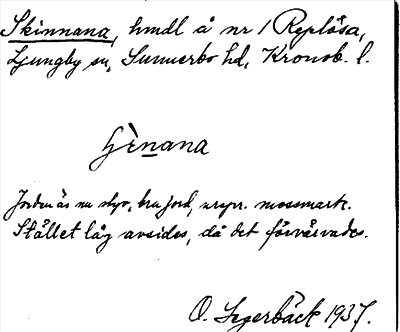 Skinnana, hmdl å nr 1 Replösa,
Ljungby sn, Sunnerbo hd, Kronob. l.
Jorden är nu styv, bra jord, urspr. mossmark.
Stället låg avsides, då det förvärvades.
O. Segerbäck 1937.